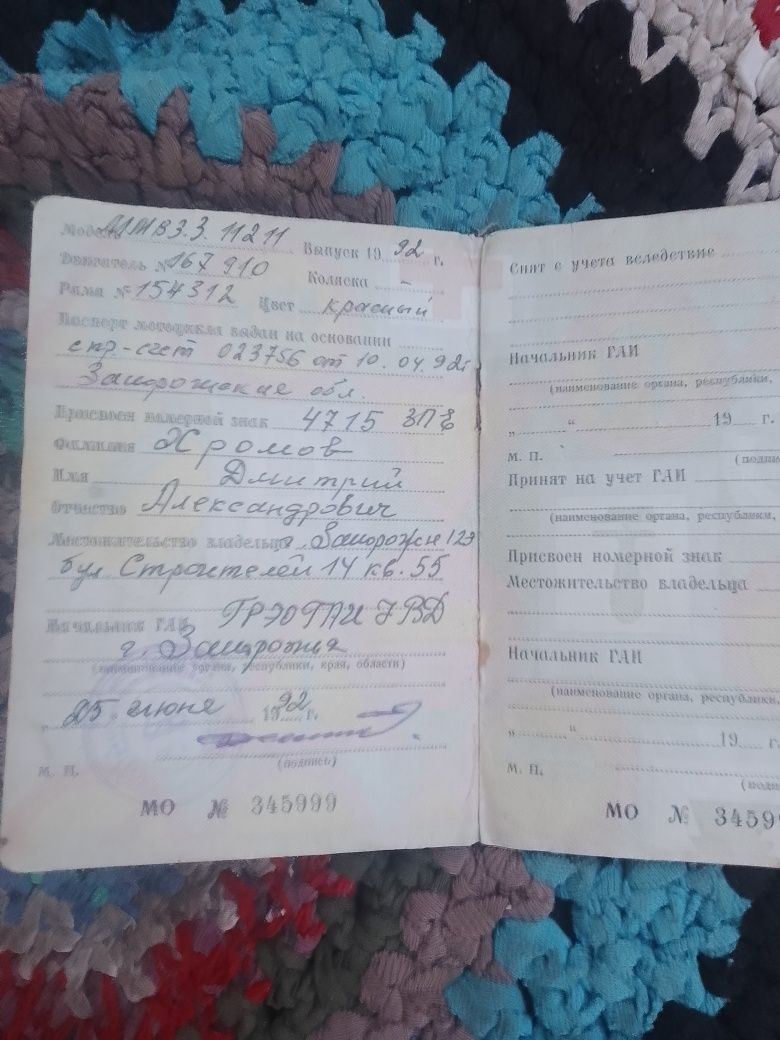 Модель ММВЗ.3.11211 Выпуск 1992 г.
Двигатель № 167910 Коляска –
Рама № 154312 Цвет красный
Паспорт мотоцикла выдан на основании
спр-счет 023756 от 10.04.92г
Запорожские обл.
Присвоен номерной знак 4715 ЗПЕ
Фамилия Хромов
Имя Дмитрий
Отчество Александрович
Местожительство владельца г. Запорожье 123
бул Строителей 14 кв. 55
Начальник ГАИ ГРЭО ГАИ УВД
г. Запорожья
(наименование органа, республики, края, области)
„25" июня 1992 г.
(подпись)
М. П.
МО № 345999
Снят с учета вследствие
Начальник ГАИ
(наименование органа, республики,
„ " 19 г.
М. П.
Принят на учет ГАИ
(наименование органа, республики,
Присвоен номерной знак
Местожительство владельца
Начальник ГАИ
(наименование органа, республики
„ " 19 г.
М. П.
МО № 3459